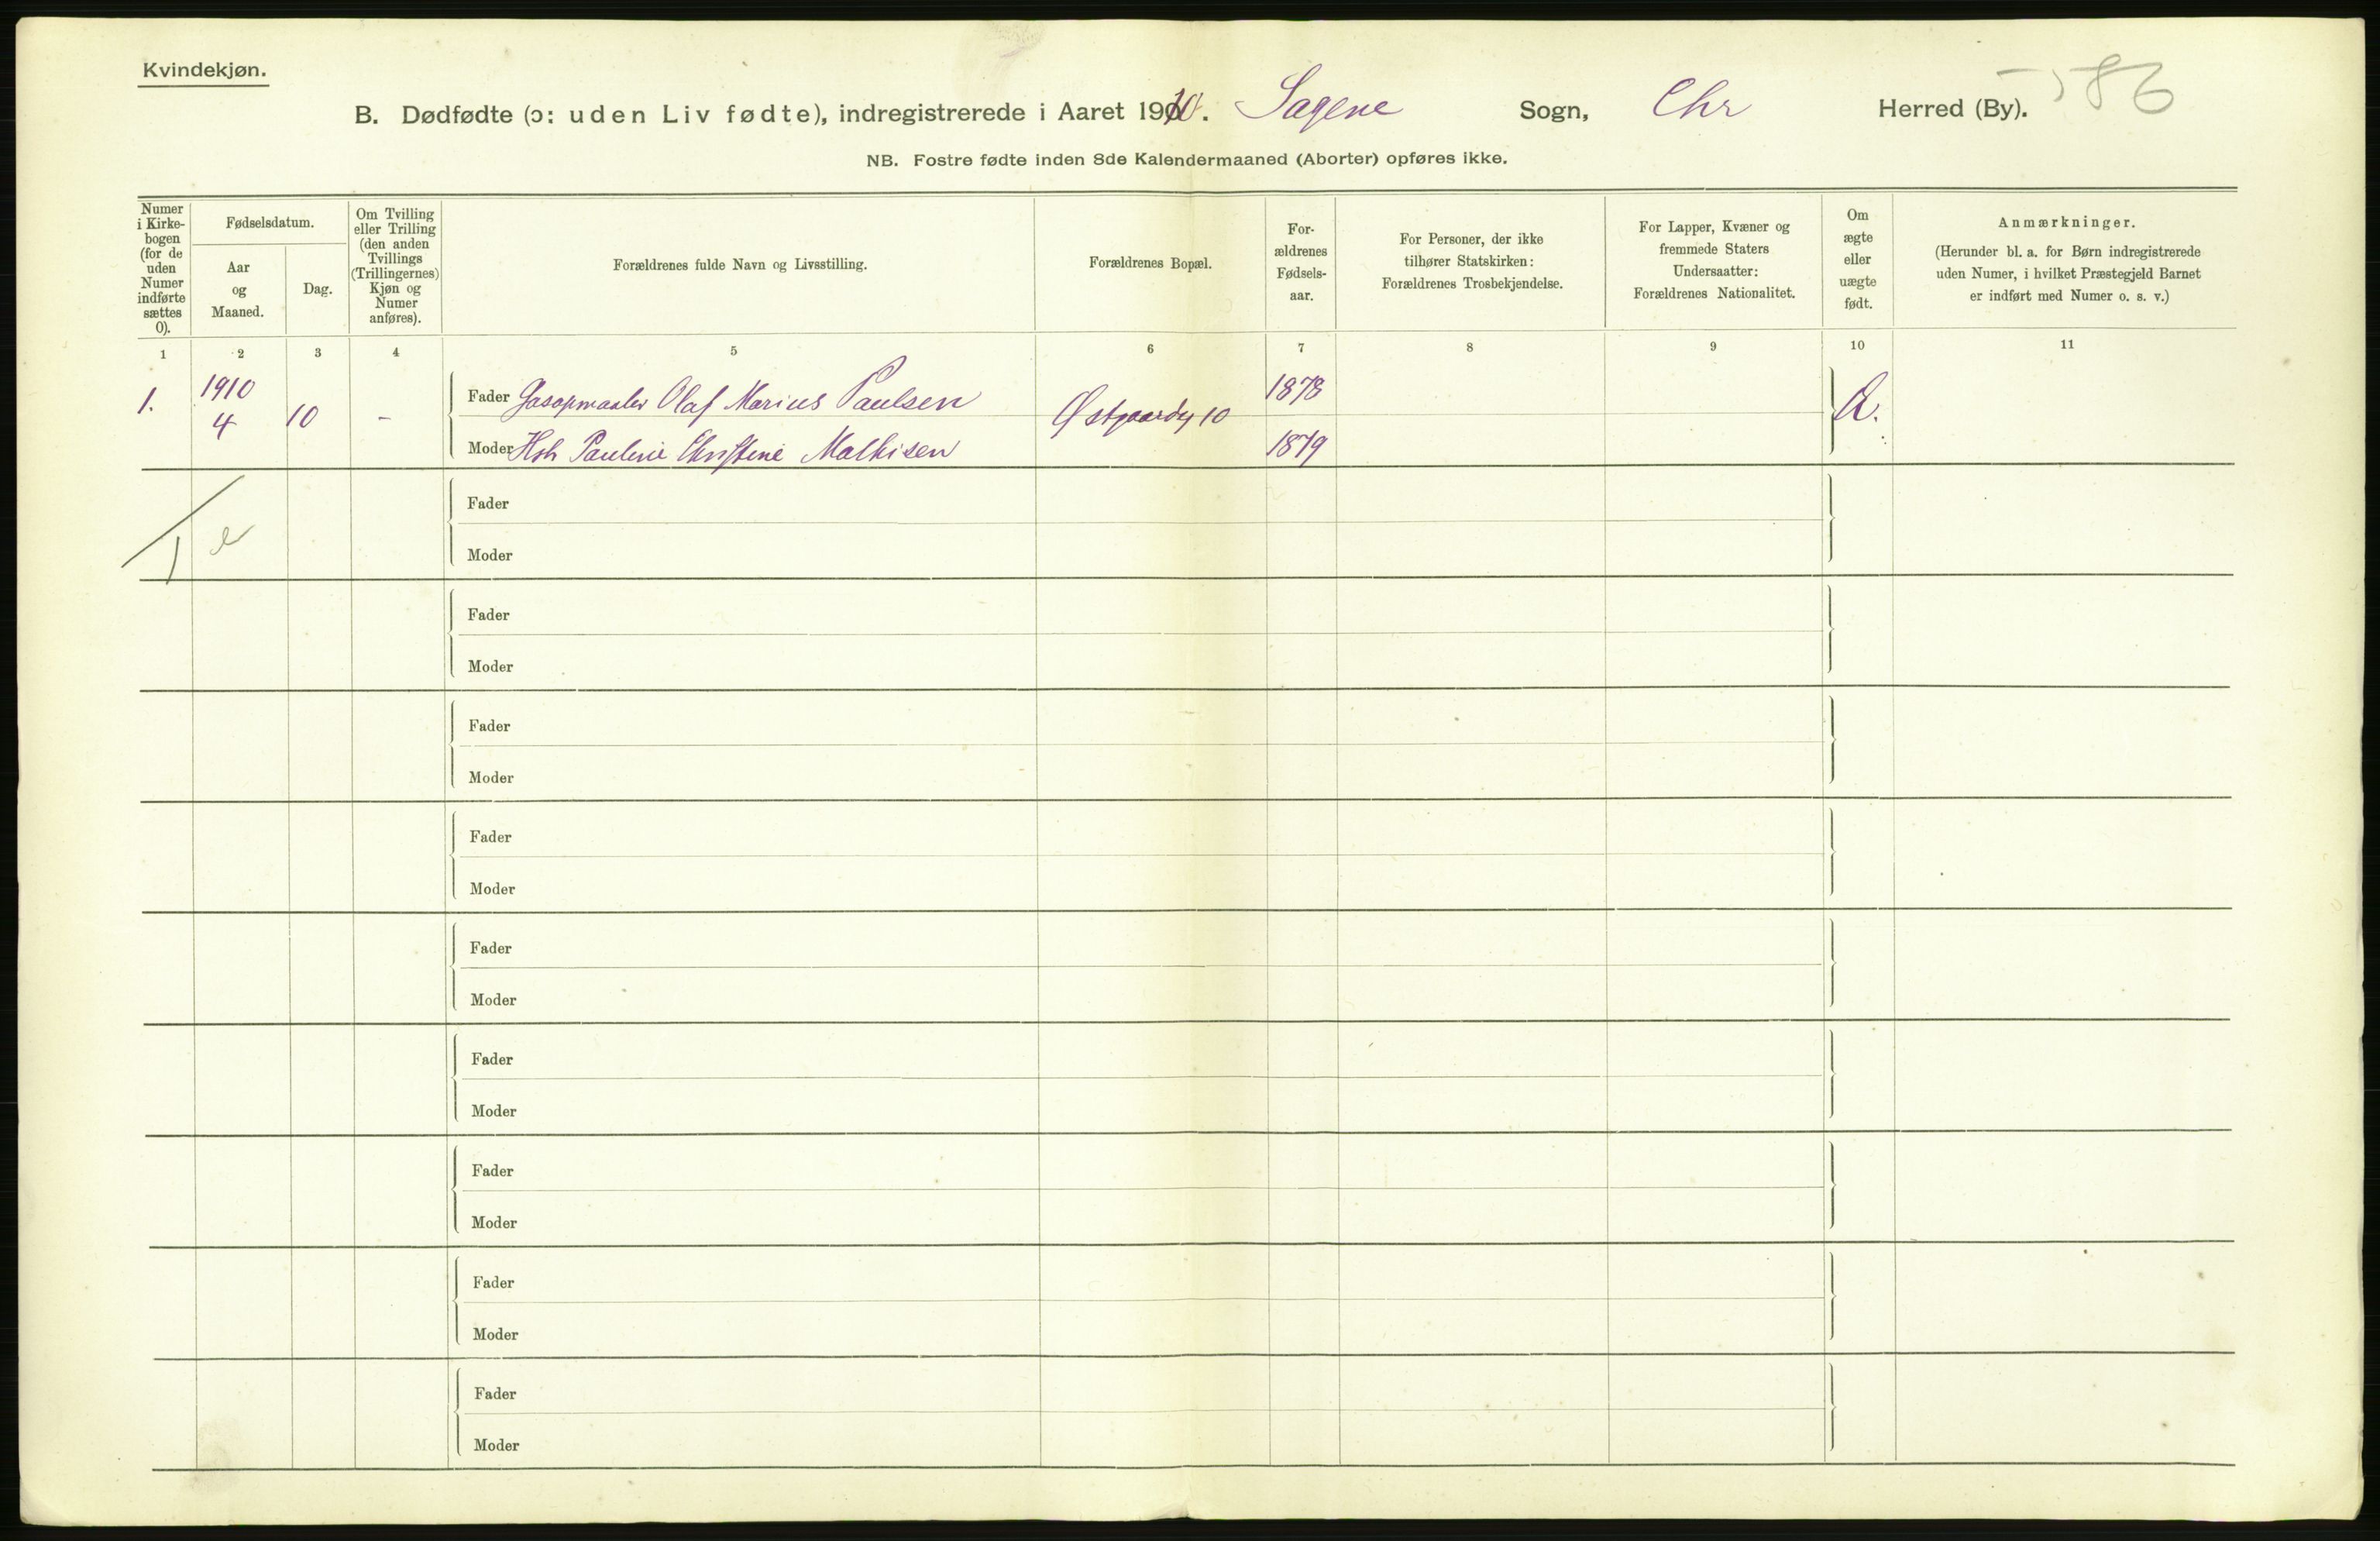 Kvindekjøn.
586
B. Dødfødte (ɔ: uden Liv fødte), indregistrerede i Aaret 1910. Sagene Sogn, Chr Herred (By).
NB. Fostre fødte inden 8de Kalendermaaned (Aborter) opføres ikke.
Numer
i Kirke-
bogen
(for de
uden
Numer
indførte
sættes
0).
Fødselsdatum.
Aar
og
Maaned.
Dag.
Om Tvilling
eller Trilling
(den anden
Tvillings
(Trillingernes)
Kjøn og
Numer
anføres).
Forældrenes fulde Navn og Livsstilling.
Forældrenes Bopæl.
For-
ældrenes
Fødsels-
aar.
For Personer, der ikke
tilhører Statskirken:
Forældrenes Trosbekjendelse.
For Lapper, Kvæner og
fremmede Staters
Undersaatter:
Forældrenes Nationalitet.
Om
ægte
eller
uægte
født.
Anmærkninger.
(Herunder bl. a. for Børn indregistrerede
uden Numer, i hvilket Præstegjeld Barnet
er indført med Numer o. s. v.)
1 2 3 4 5 6 7 8 9 10 11
1. 1910
4 10 -
Fader Gasopmaaler Olaf Marius Paulsen 1878
Østgaardsg 10 Æ.
Moder Hstr Pauline Christine Mathisen 1879
Fader
Moder
Fader
Moder
Fader
Moder
Fader
Moder
Fader
Moder
Fader
Moder
Fader
Moder
Fader
Moder
Fader
Moder